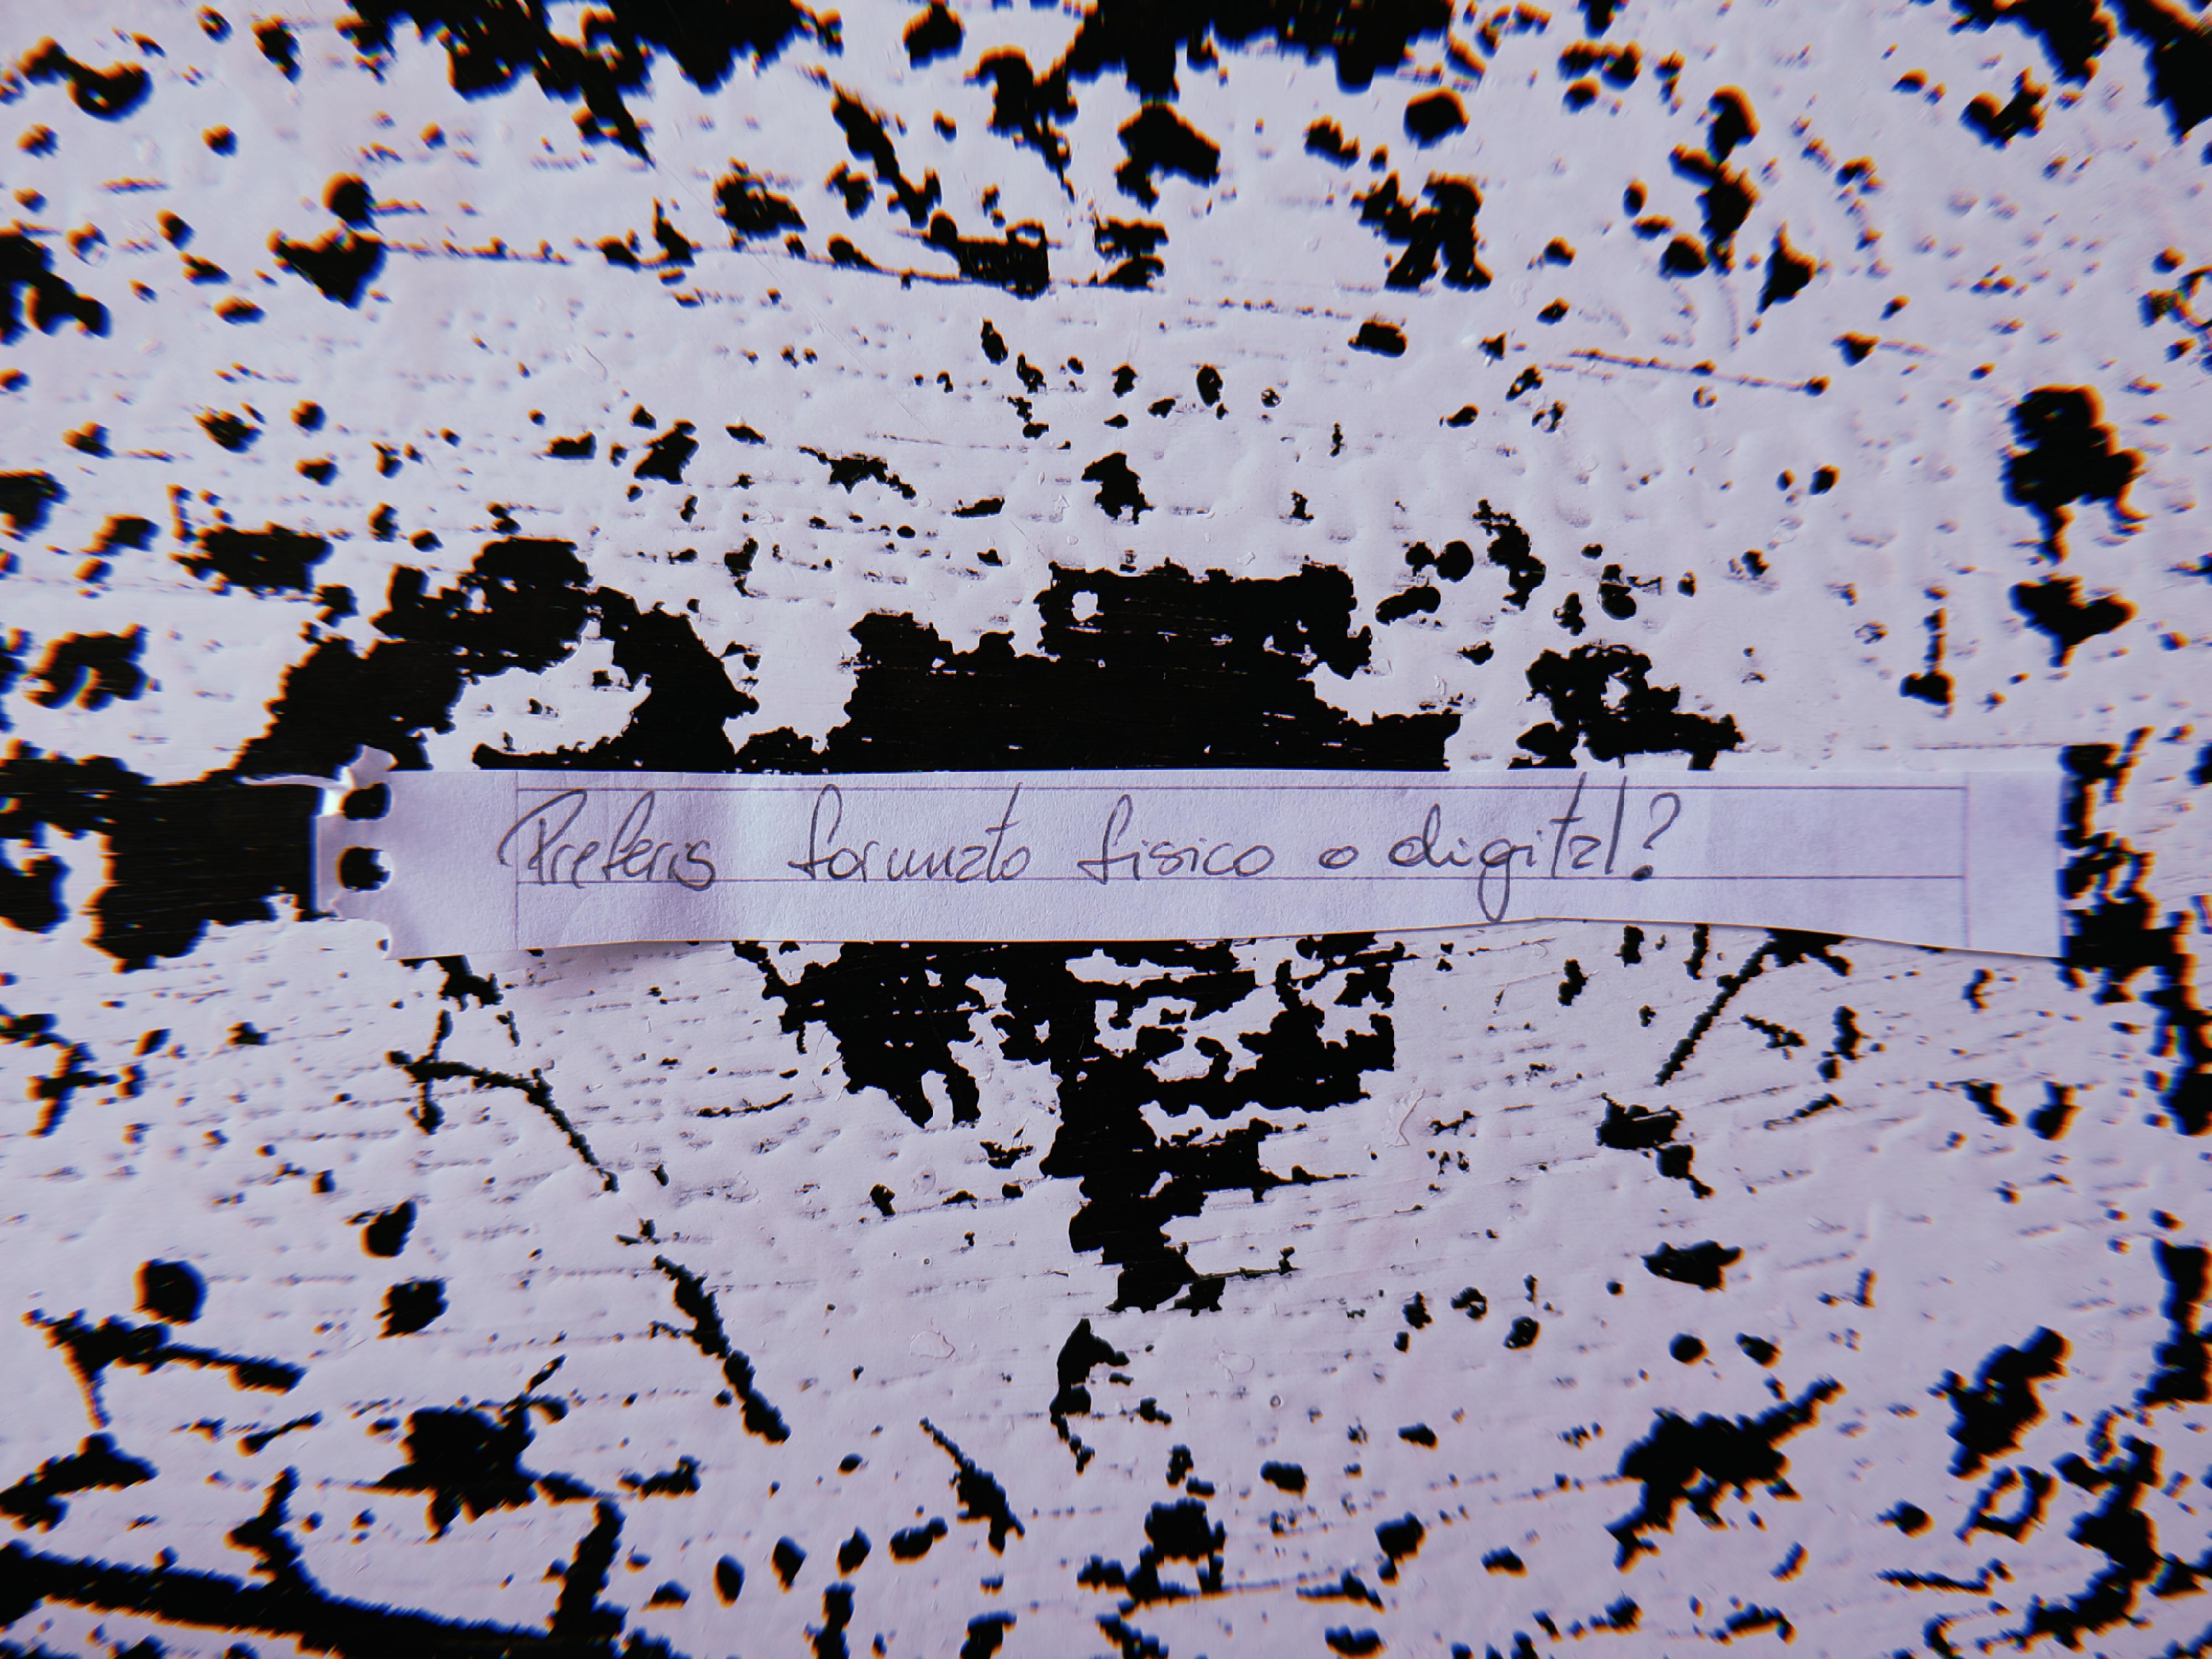 Preferis formato fisico o digital?